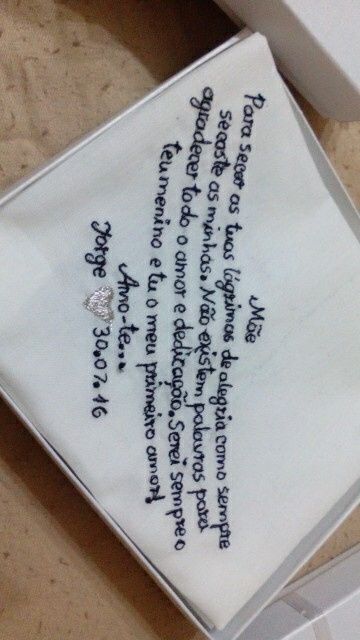 Mãe
Para secar as tuas lágrimas de alegria como sempre
secaste as minhas. Não existem palavras para
agradecer todo o amor e dedicação. Serei sempre o
teu menino e tu o meu primeiro amor!
Amo-te...
Jorge 30.07.16